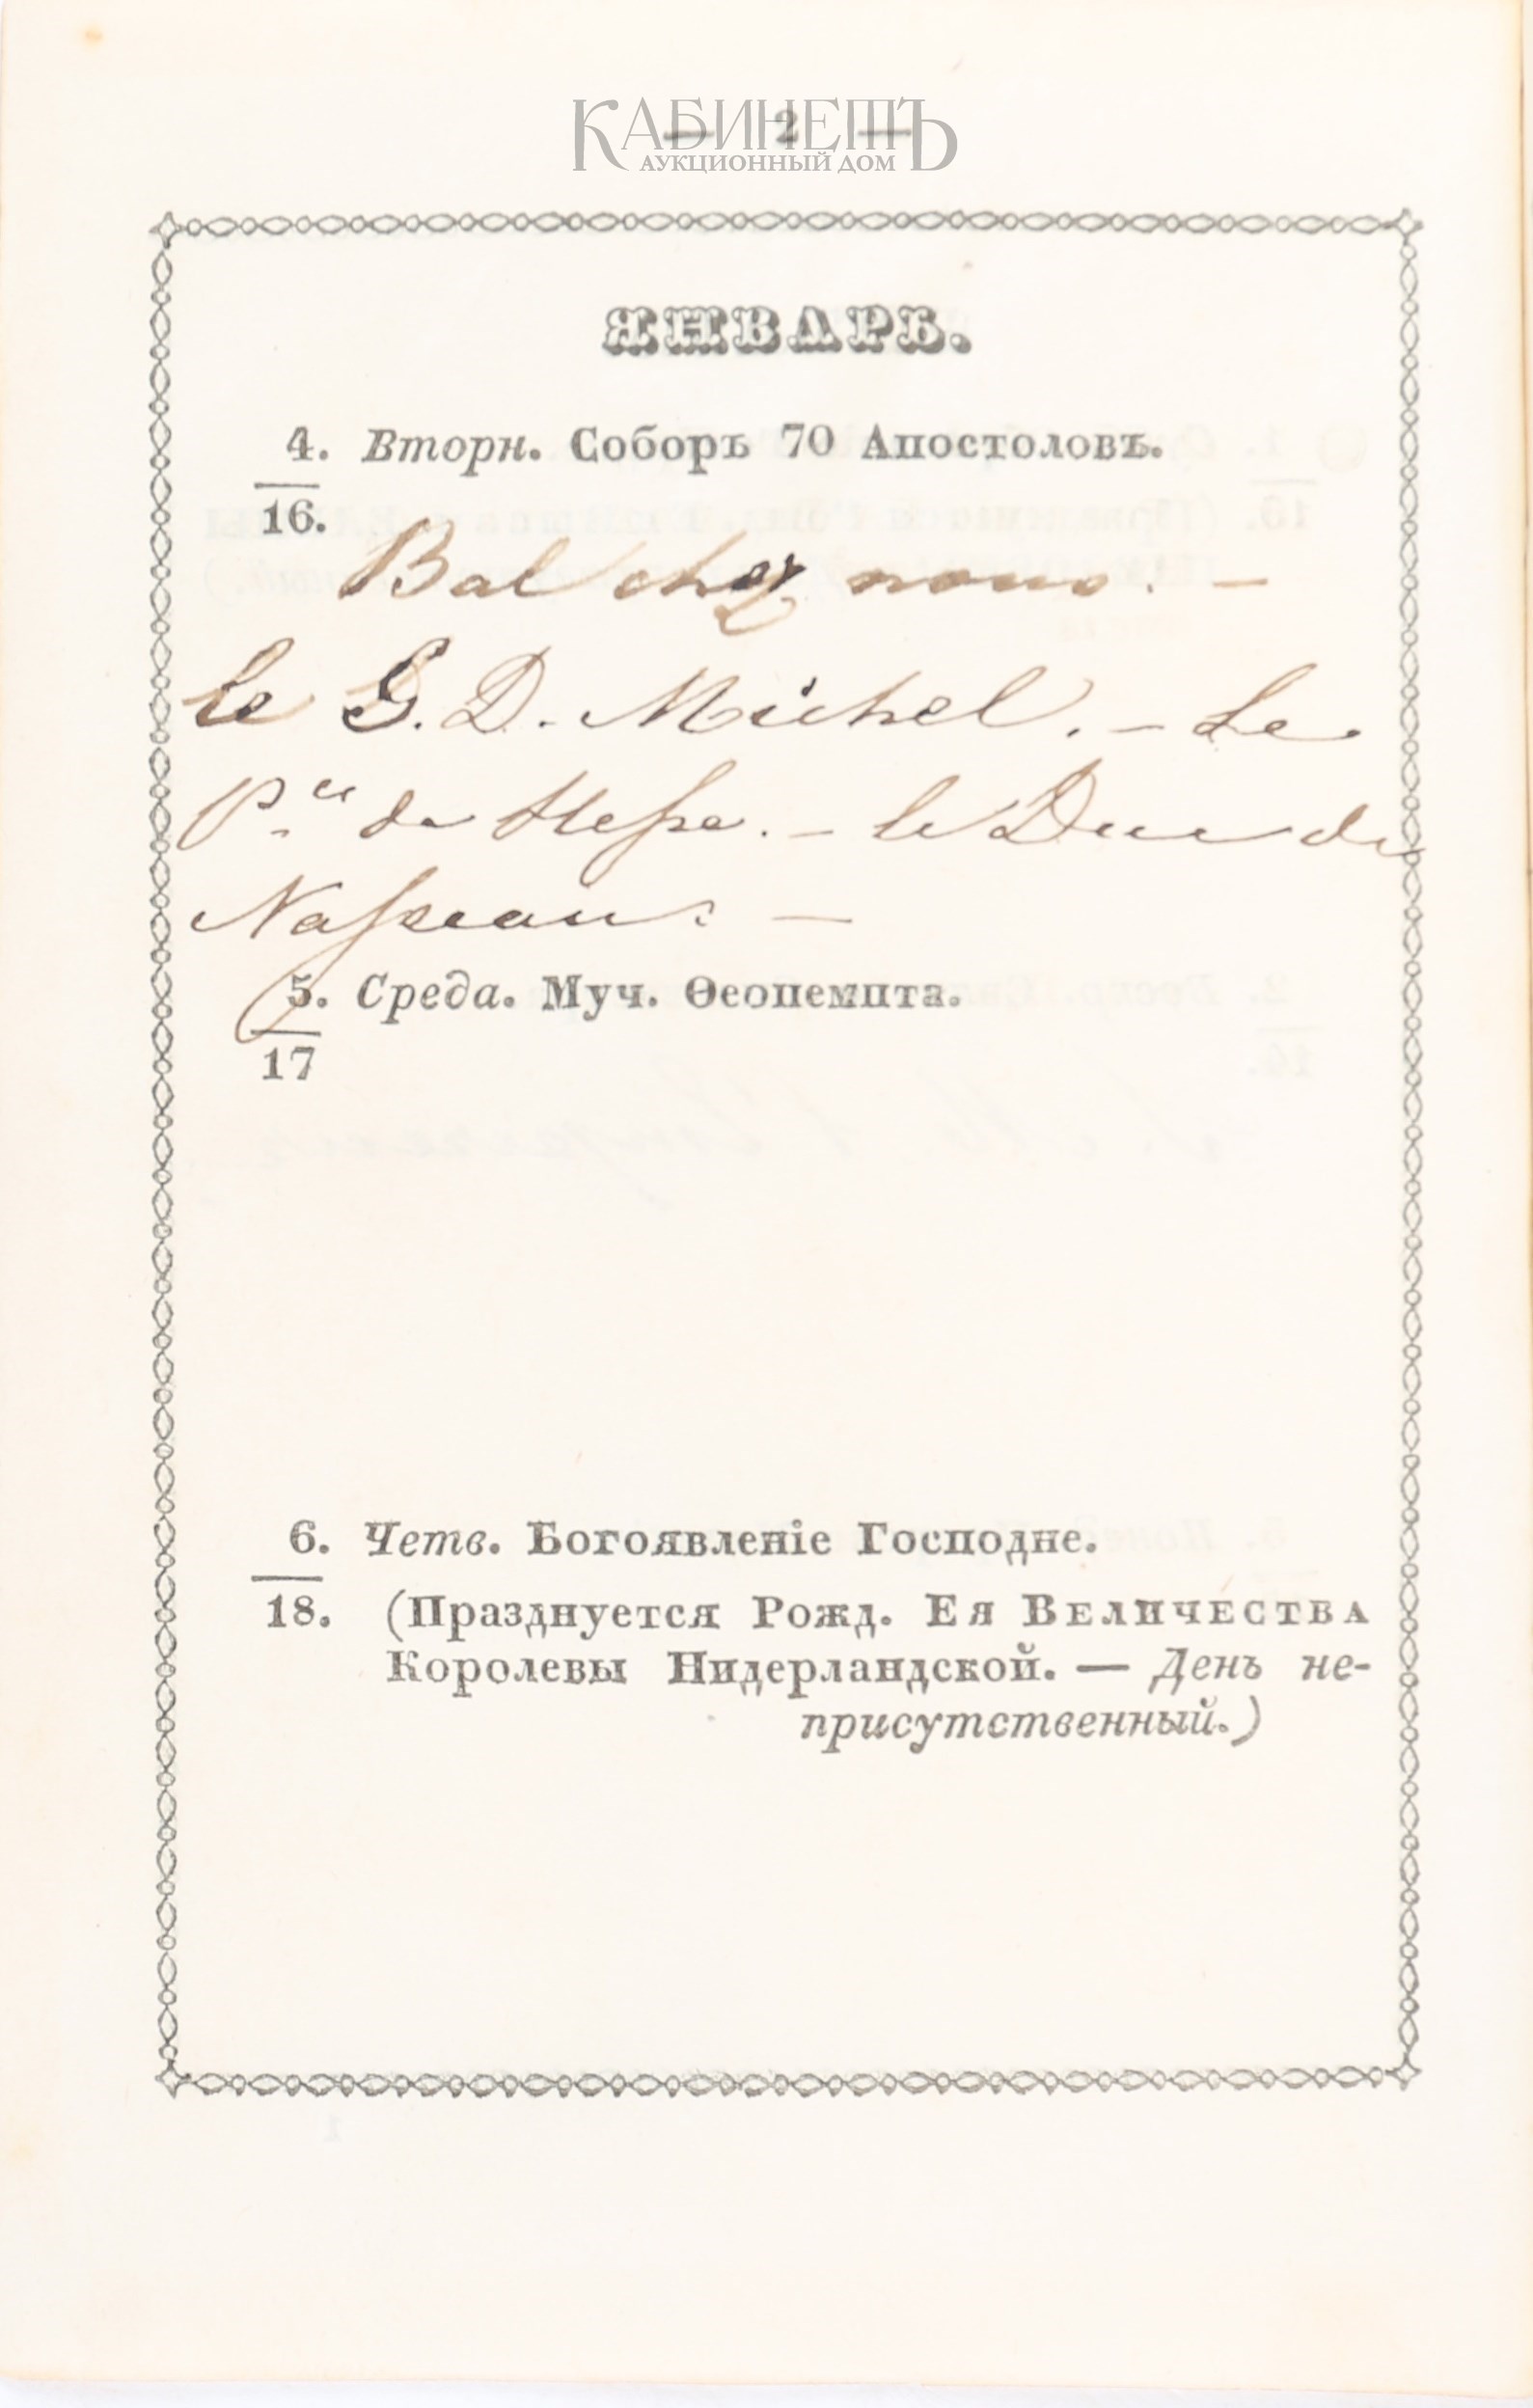 КАБИНЕТЪ
— 2 —
АУКЦИОННЫЙ ДОМ
ЯНВАРЬ.
4. Вторн. Соборъ 70 Апостоловъ.
16.
Bal chez nous. —
le G. D. Michel. — Le
P.ce de Hesse. — le Duc de
Nassau. —
5. Среда. Муч. Ѳеопемпта.
17
6. Четв. Богоявленіе Господне.
18. (Празднуется Рожд. Ея Величества
Королевы Нидерландской. — День не-
присутственный.)